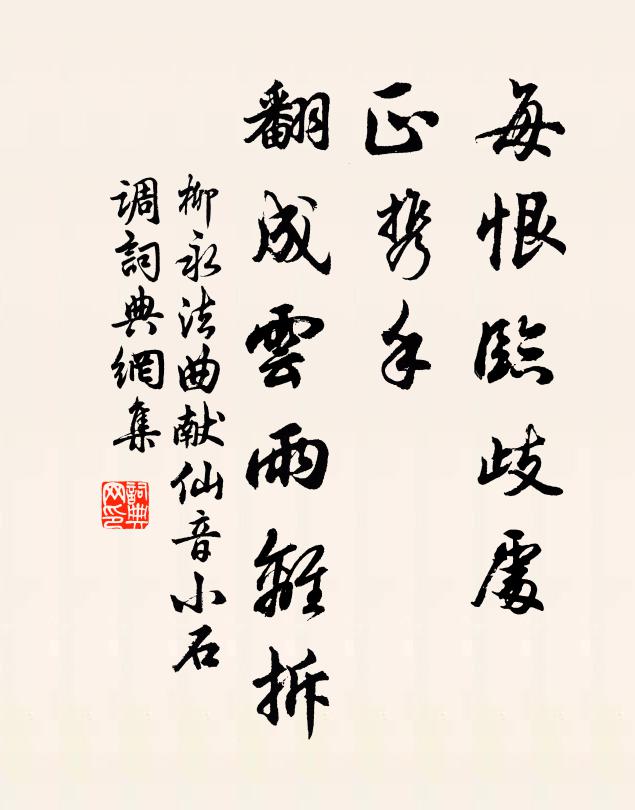 每恨臨歧處
正携手
翻成雲雨離拆
柳永法曲献仙音小石
调詞典網集
詞典網印